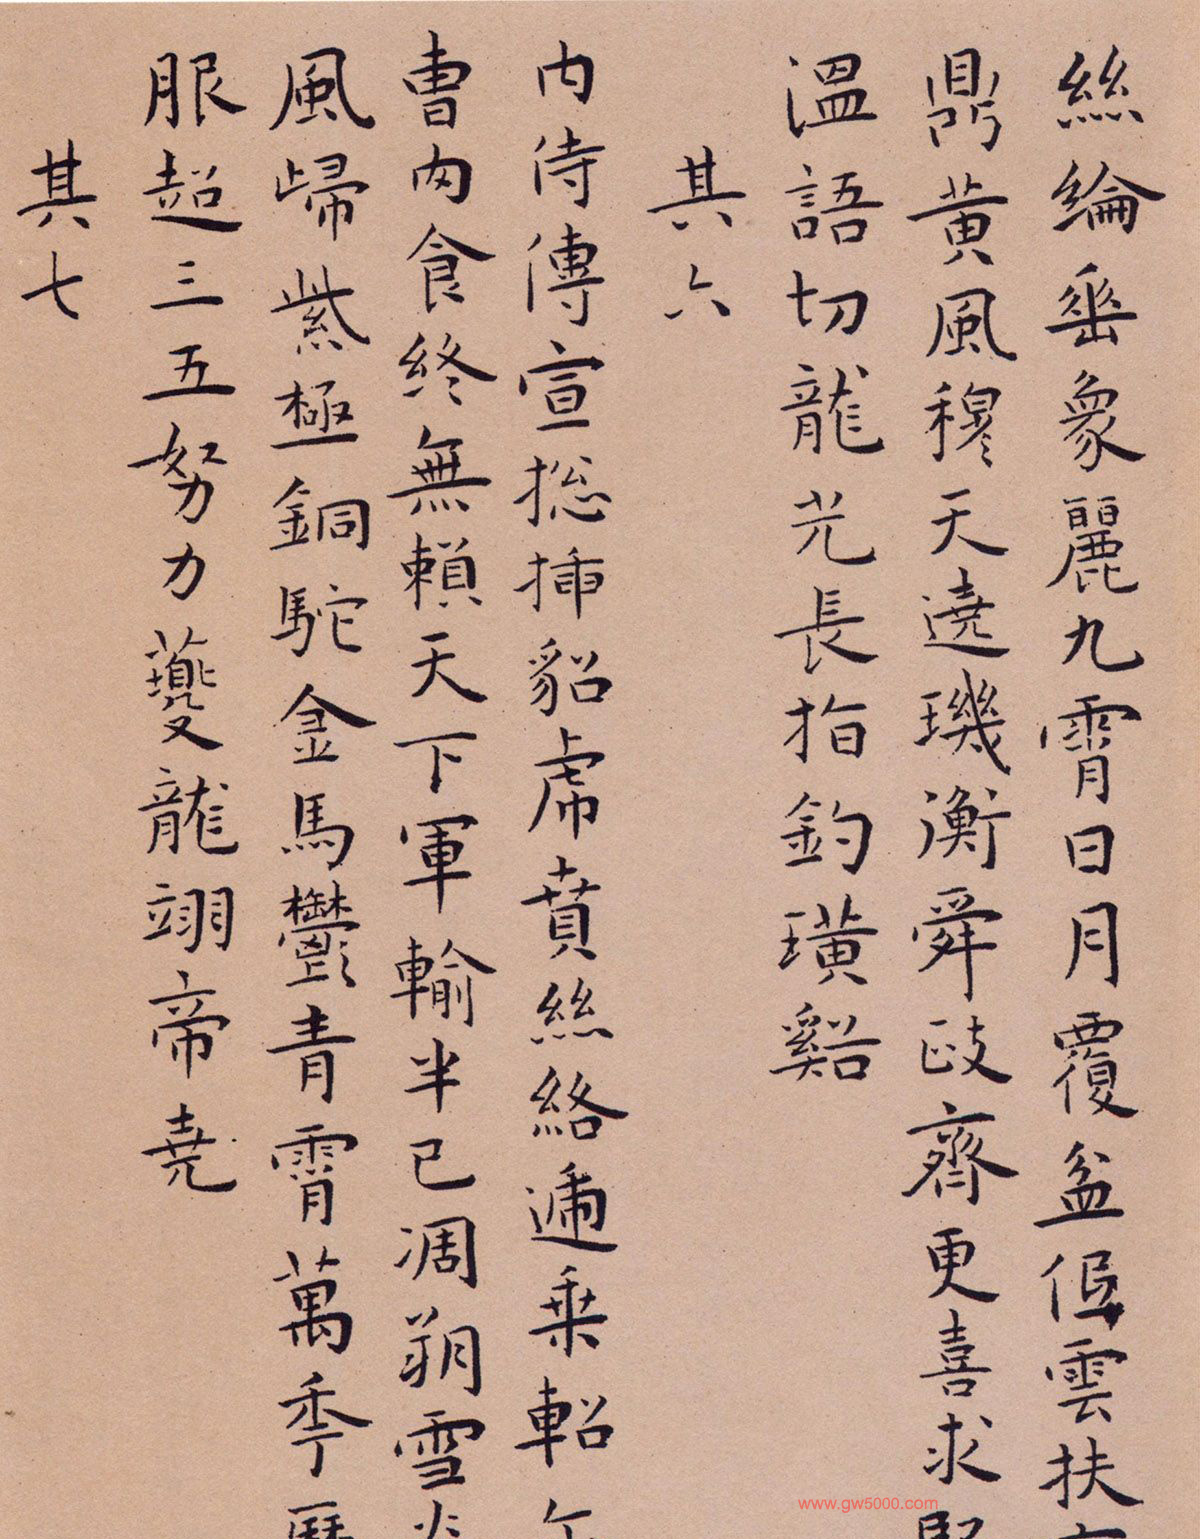 絲綸垂象麗九霄日月覆盆低雲扶
鼎黃風穆天遶璣衡舜歧齊更喜求賢
溫語切龍光長指釣璜谿
其六
內侍傳宣摠插貂虎賁絲絡逓乗軺
曹內食終無賴天下軍輸半已凋朔雪
風歸紫極銅駝金馬鬱青霄萬季歷
服超三五努力夔龍翊帝堯
其七
www.gw5000.com